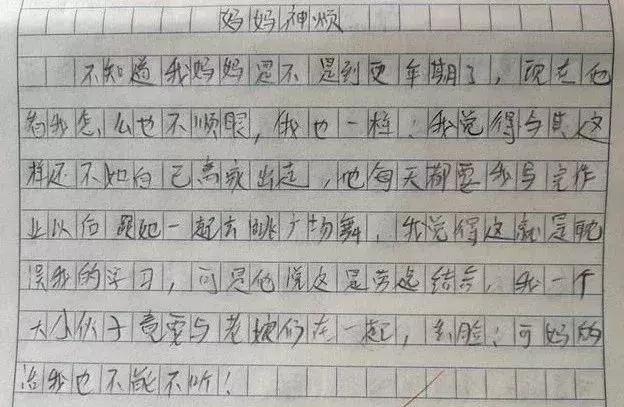 妈妈神烦
不知道我妈妈是不是到更年期了，现在他
看我怎么也不顺眼，我也一样：我觉得与其这
样还不如自己离家出走，他每天都要我写完作
业以后跟她一起去跳广场舞，我觉得这就是耽
误我的学习，可是他说这是劳逸结合，我一个
大小伙子竟要与老娘们在一起，丢脸；可妈的
话我也不能不听！